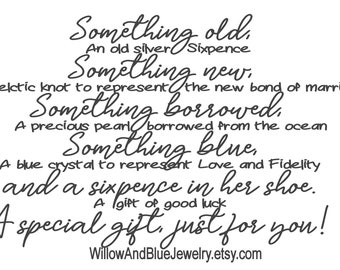 Something old,
An old silver Sixpence
Something new,
eltic knot to represent the new bond of marri
Something borrowed,
A precious pearl borrowed from the ocean
Something blue,
A blue crystal to represent Love and Fidelity
and a sixpence in her shoe.
A gift of good luck
A special gift, just for you!
WillowAndBlueJewelry.etsy.com